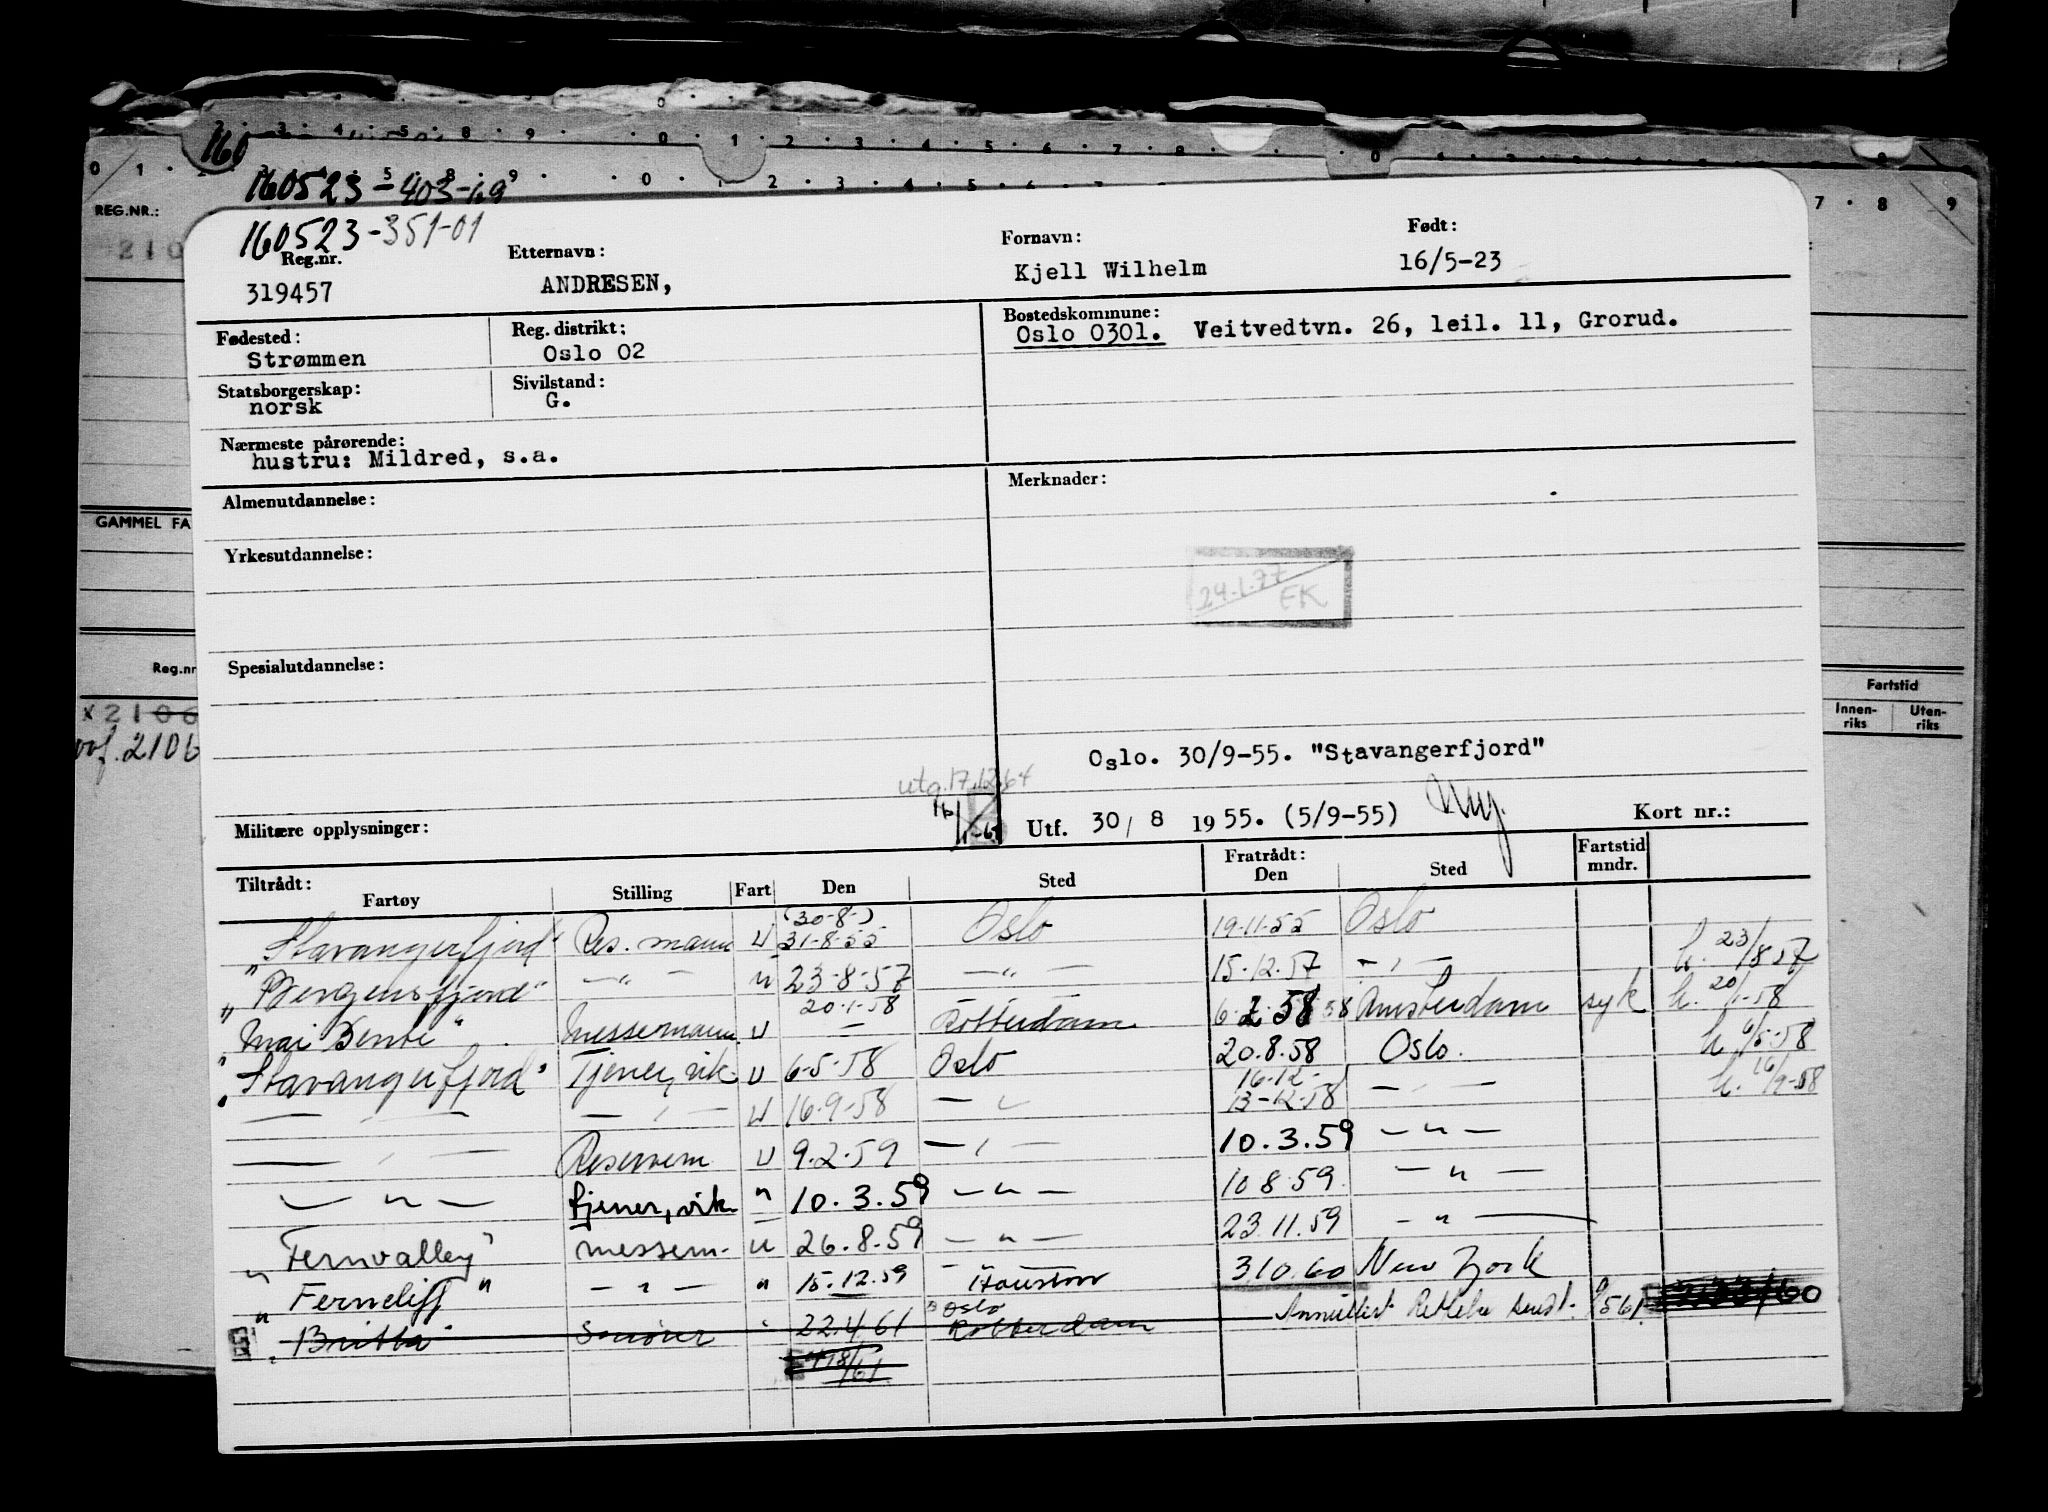 2 · 3 · 4 · 5 · 8 · 9 · 0 · 1 · 2 · 3 · 4 · 5 · 6 · 7 · 8 · 0
160
0 1
160523-403-69
REG.NR.:
210
160523-351-01
Reg.nr. Etternavn: Fornavn: Født:
319457 ANDRESEN, Kjell Wilhelm 16/5-23
Fødested: Reg. distrikt: Bostedskommune:
Strømmen Oslo 02 Oslo 0301. Veitvedtvn. 26, leil. 11, Grorud.
Statsborgerskap: Sivilstand:
norsk G.
Nærmeste pårørende:
hustru: Mildred, s.a.
Almenutdannelse: Merknader:
GAMMEL FA
Yrkesutdannelse:
24.1.77
EK
Spesialutdannelse:
Reg.nr
Fartstid
Innenriks Utenriks
x 2106
2106
Oslo. 30/9-55. "Stavangerfjord"
utg. 17.12.64
Militære opplysninger: Utf. 30/ 8 1955. (5/9-55) Kort nr.:
Tiltrådt: Fratrådt: Fartstid mndr.
Fartøy Stilling Fart Den Sted Den Sted
"Stavangerfjord" Res. mann U (30-8-) 31-8-55 Oslo 19-11-55 Oslo
"Bergensfjord" — " — u 23-8-57 — " — 15-12-57 — " — h. 23/8 57
"Mai Bente" Messemann U 20-1-58 Rotterdam 6-2-58 Amsterdam syk h. 20/1-58
"Stavangerfjord" Tjener, vik. U 6-5-58 Oslo 20.8.58 Oslo. h. 6/5-58
— " — — " — U 16-9-58 — " — 16-12- 13-12-58 — " — h. 16/9-58
— " — Reservem U 9-2-59 — " — 10.3.59 — " —
— " — tjener, vik. " 10.3.59 — " — 10 8 59 — " —
"Fernvalley" messem. u 26.8.59 — " — 23.11.59 — " —
"Ferncliff" — " — " 15.12.59 Houston 3 10.60 New York
"Britta" " 22.4.61 Oslo Rotterdam Annullert